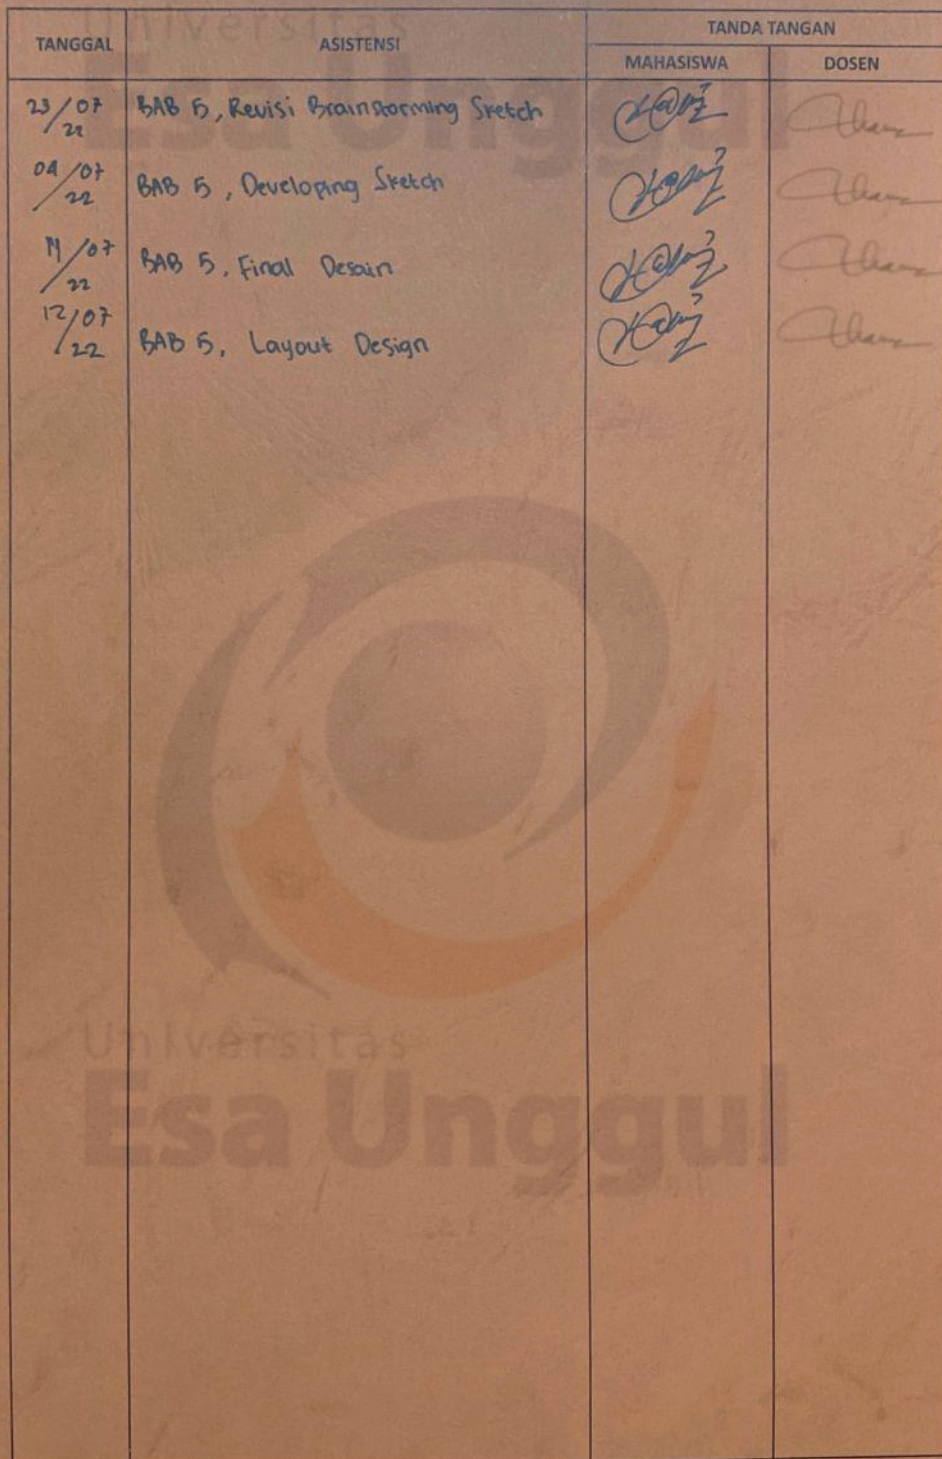 Universitas
Esa Unggul
TANGGAL ASISTENSI TANDA TANGAN
MAHASISWA DOSEN
23/07/22 BAB 5, Revisi Brainstorming Sketch
04/07/22 BAB 5, Developing Sketch
11/07/22 BAB 5, Final Desain
12/07/22 BAB 5, Layout Design
Universitas
Esa Unggul